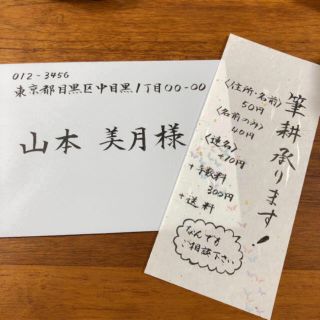 012-3456
東京都目黒区中目黒1丁目00-00
山本 美月様
筆耕 承ります!
〈住所・名前〉
50円
〈名前のみ〉
40円
〈連名〉
+10円
+手数料
300円
+送料
なんでも
ご相談下さい